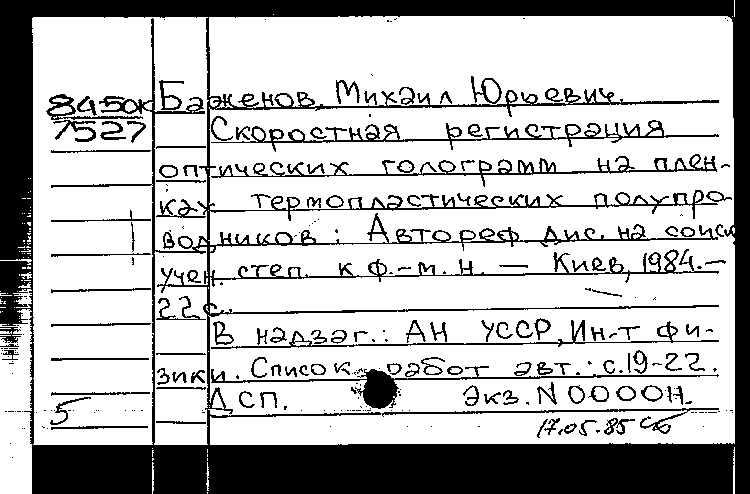 84-50к Баженов, Михаил Юрьевич.
7527 Скоростная регистрация
оптических голограмм на плен-
ках термопластических полупро-
водников: Автореф. дис. на соиск.
учен. степ. к.ф.-м.н. — Киев, 1984.—
22 с.
В надзаг.: АН УССР, Ин-т фи-
зики. Список работ авт.: с.19-22.
ДСП. Экз. N 00004.
5
17.05.85